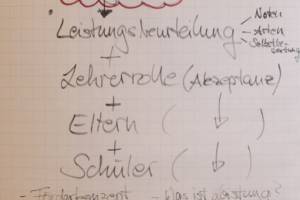 Leistungsbeurteilung - Noten
- Arten
+
Lehrerrolle (Akzeptanz)
+
Eltern ( ↓ )
+
Schüler ( ↓ )
- Förderkonzept - Was ist Leistung?